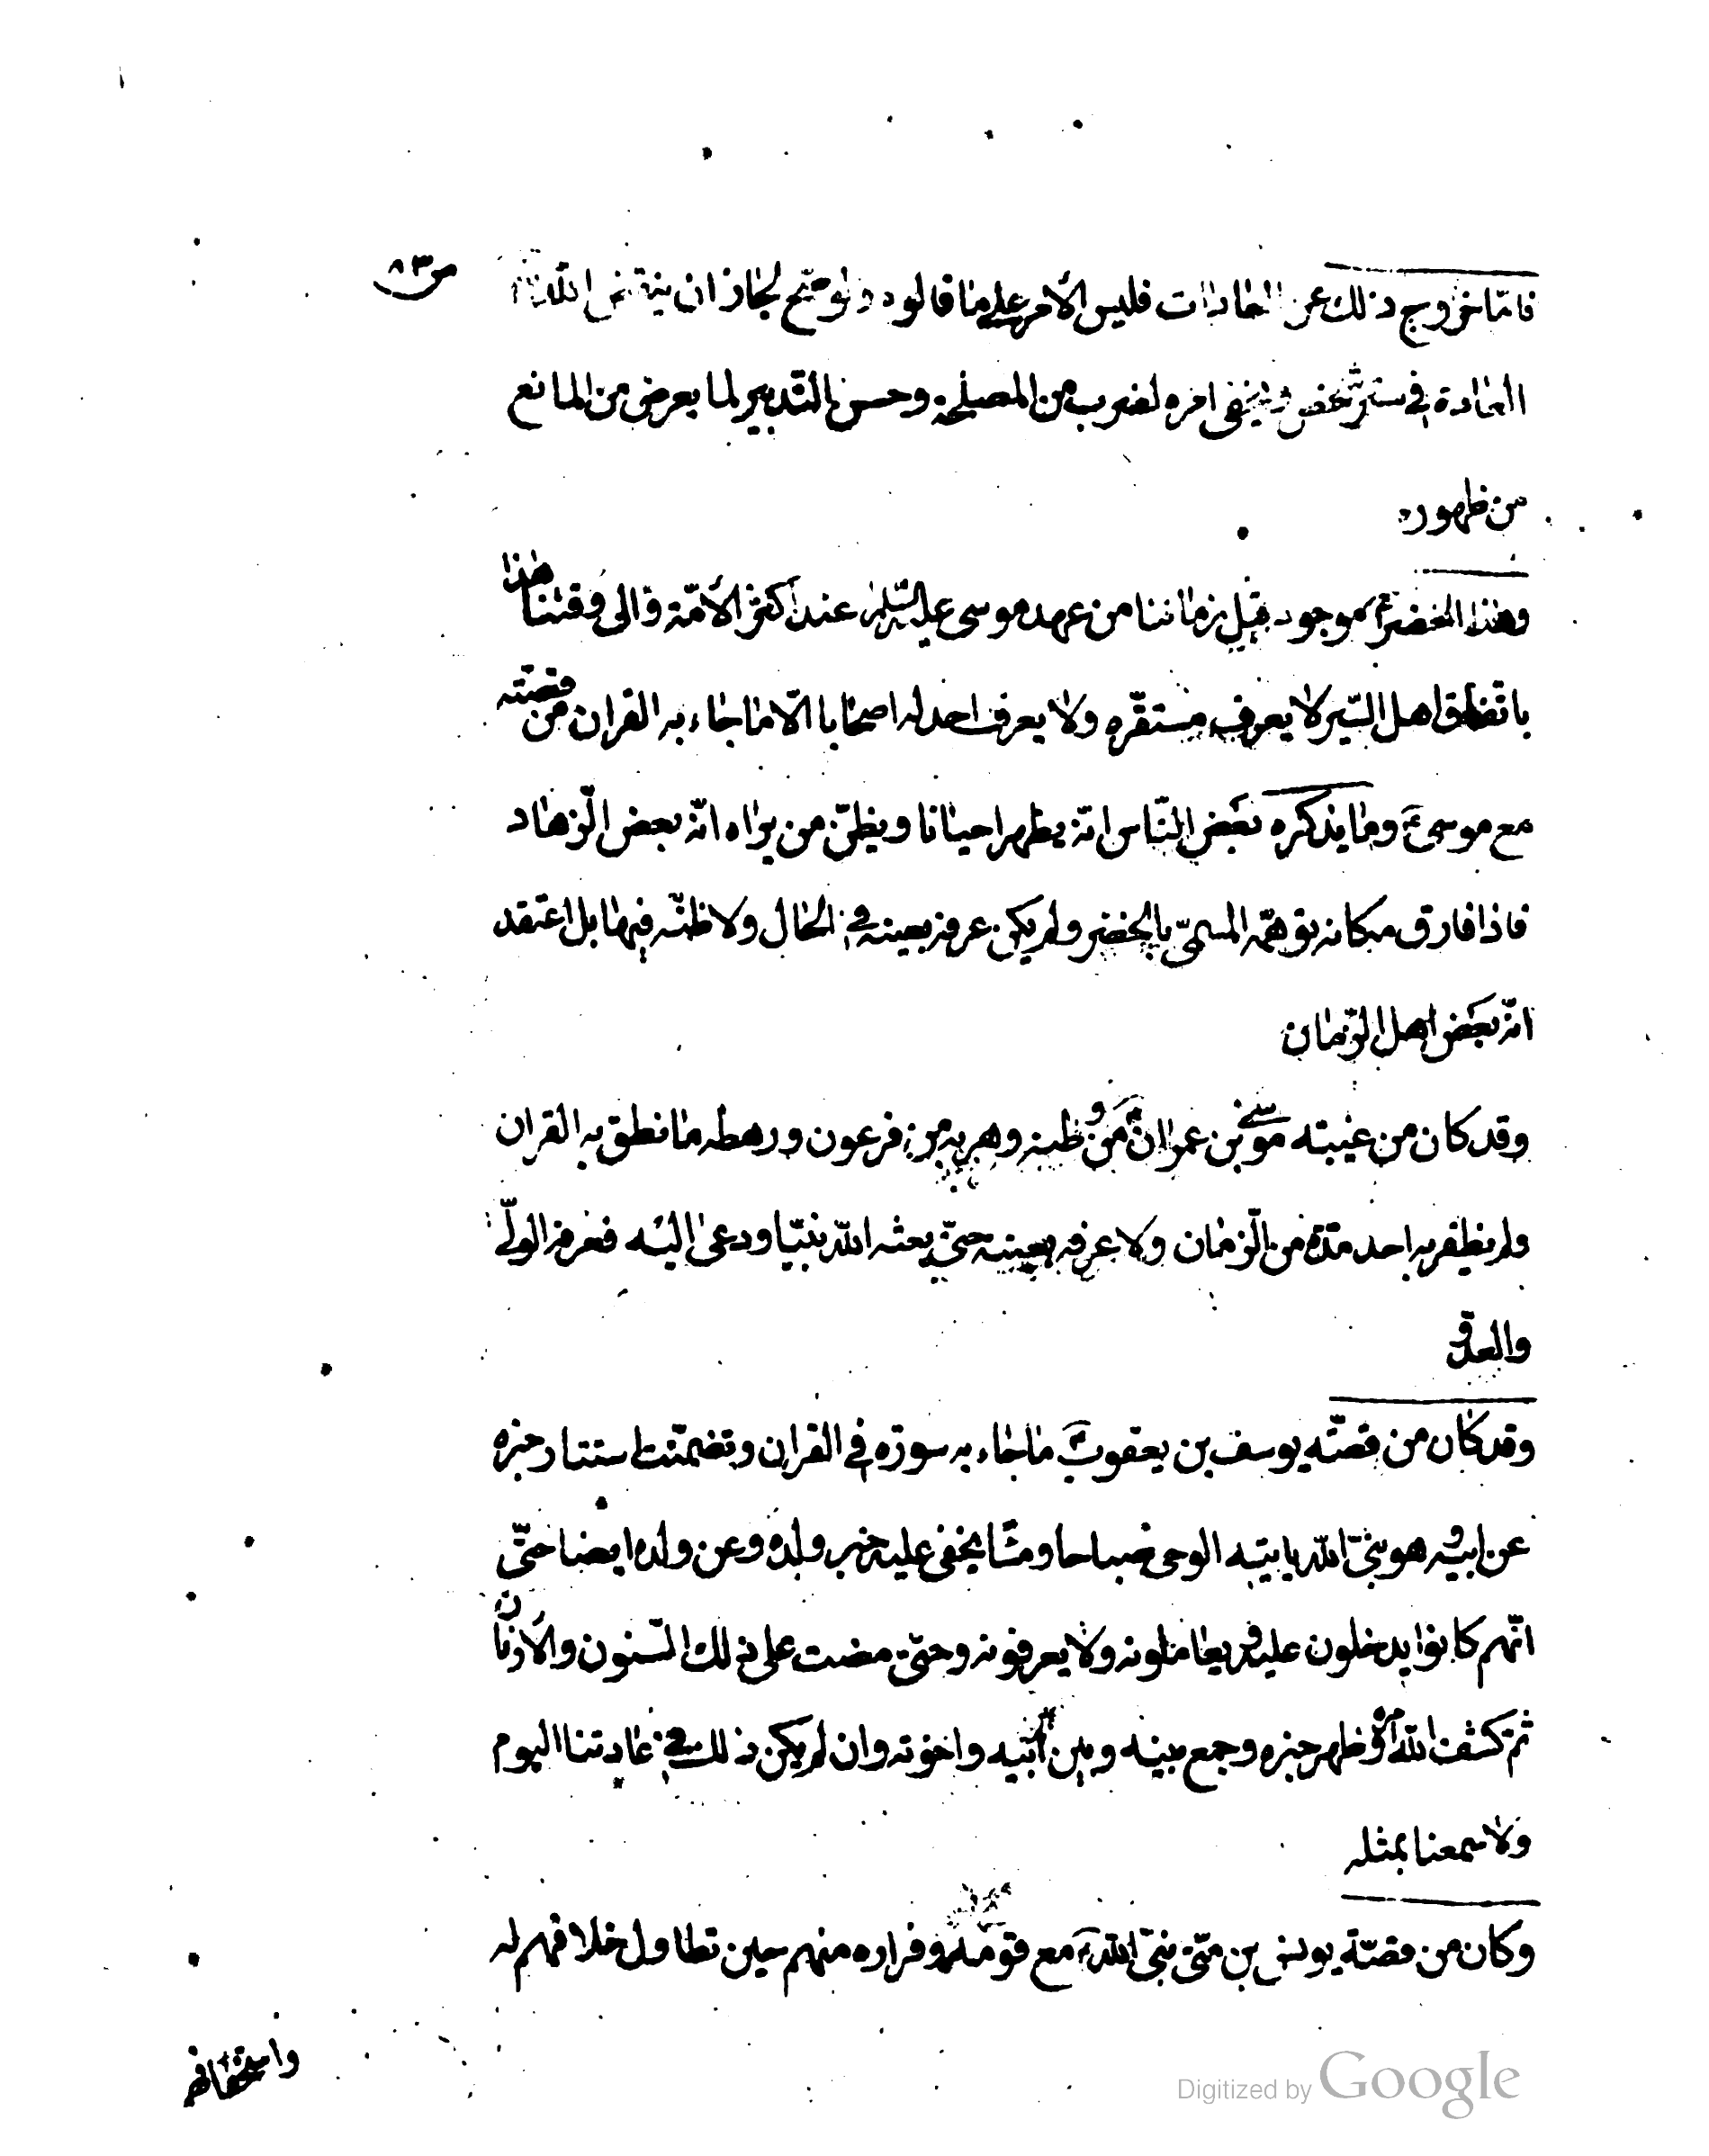 ص ٨٣
فامّا خروج ذلك عن العادات فليس الأمر على ما قالوه ولو صحّ لجاز ان ينقض الله تعالى
العادة في ستر شخص ويخفى امره لضرب من المصلحة وحسن التدبير لما يعرض من المانع
من ظهوره
وهذا الخضر ع موجود قبل زماننا من عهد موسى عليه السّلام عند أكثر الأمّة والى وقتنا هذا
باتّفاق اهل السّير لا يعرف مستقرّه ولا يعرف احد له اصحابا الّا ما جاء به القران من قصّته
مع موسى ع وما يذكره بعض النّاس انّه يظهر احيانا ويظنّ من يراه انّه بعض الزّهاد
فاذا فارق مكانه توهمّه المسمّى بالخضر ولم يكن عرفه بعينه في الحال ولا ظنّه فيها بل اعتقد
انّه بعض اهل الزّمان
وقد كان من غيبته موسى بن عمران ع من وطنه وهربه من فرعون ورهطه ما نطق به القران
ولم يظفر به احد مدّة من الزّمان ولا عرفه بعينه حتّى بعثه الله نبيّا ودعى اليه فعرفه الولّي
والعدوّ
وقد كان من قصّته يوسف بن يعقوب ع ما جاء به سورة في القران وتضمّنت استتار خبره
عن ابيه وهو نبيّ الله يا بيته الوحى صباحا ومسّا يخفى عليه خبر ولده وعن ولده ايضا حتّى
انّهم كانوا يدخلون عليه ويعاملونه ولا يعرفونه وحتّى مضت على ذلك السّنون والأزمان
ثم كشف الله امره وظهر خبره وجمع بينه وبين أبيه واخوته وان لم يكن ذلك في عادتنا اليوم
ولا سمعنا بمثله
وكان من قصّة يونس بن متّى نبيّ الله ع مع قومه وفراره منهم حين تطاول خلافهم له
واستخفافهم
Digitized by Google